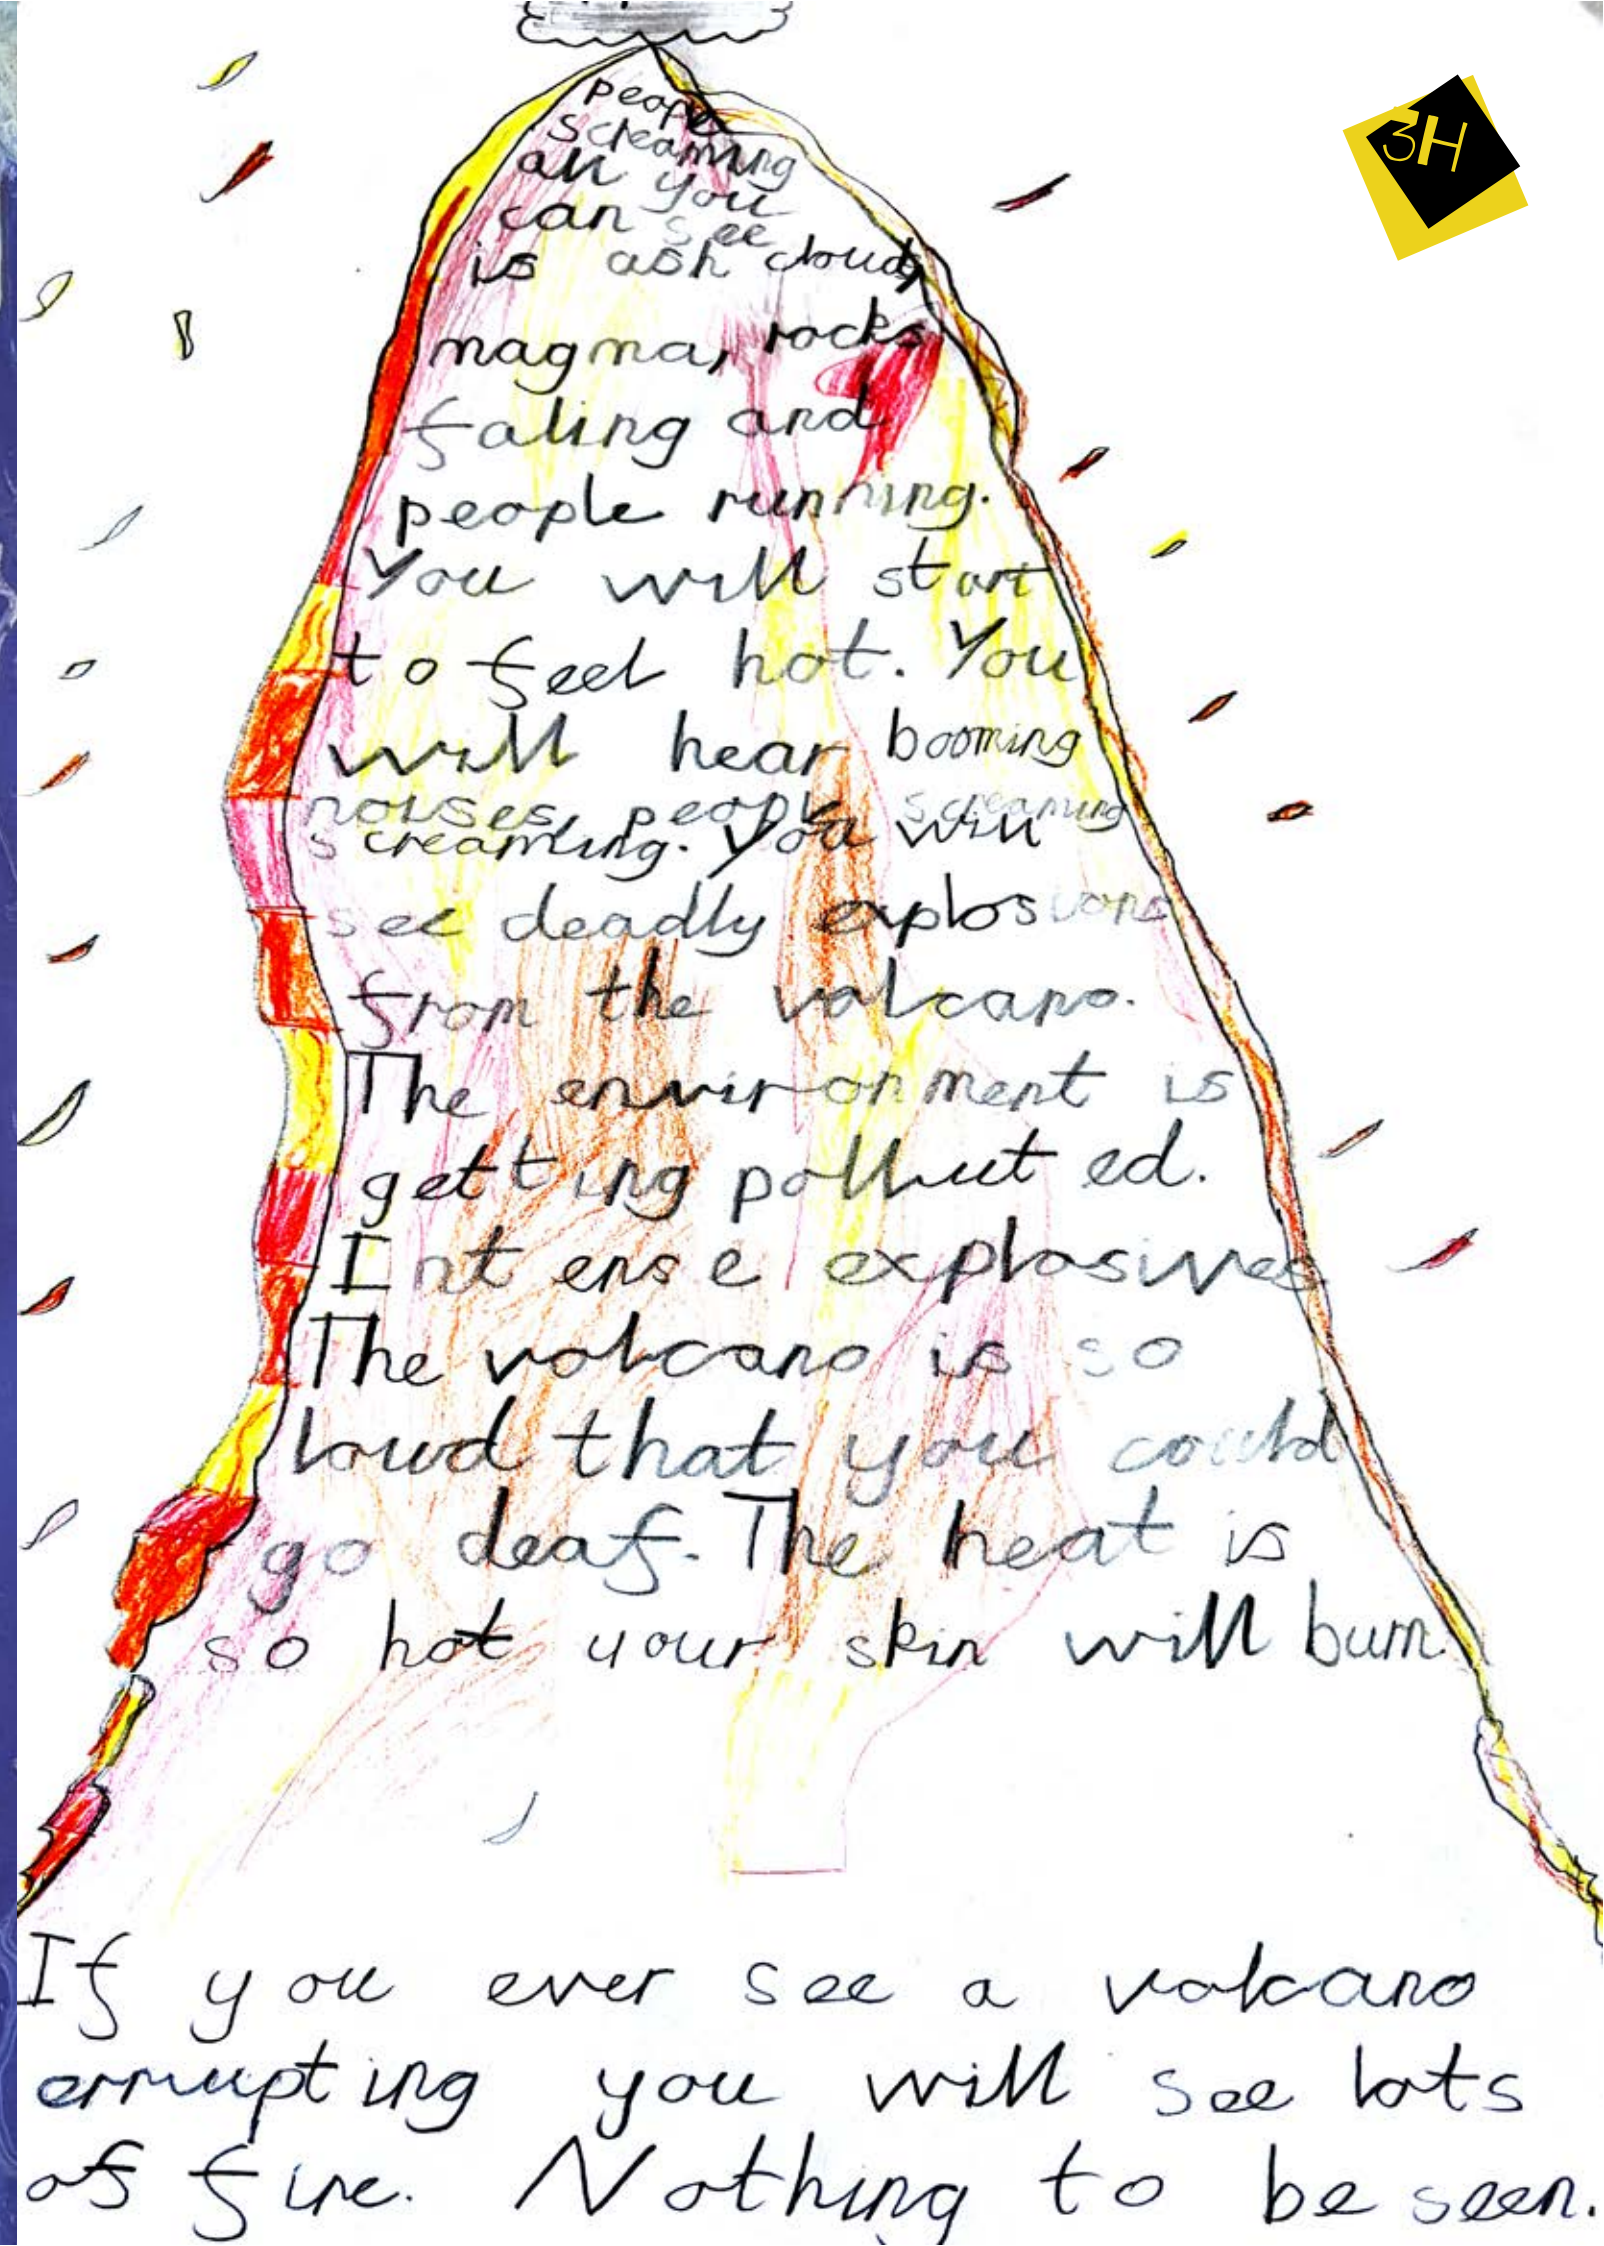 3H
people
screaming
all you
can see
is ash clouds,
magma, rocks
faling and
people running.
You will start
to feel hot. You
will hear booming
noises, people screaming
screamling. You will
see deadly explosions
from the volcano.
The environment is
getting pollut ed.
Intense explosives
The volcano is so
loud that you could
go deaf. The heat is
so hot your skin will burn.
If you ever see a volcano
errupting you will see lots
of fire. Nothing to be seen.